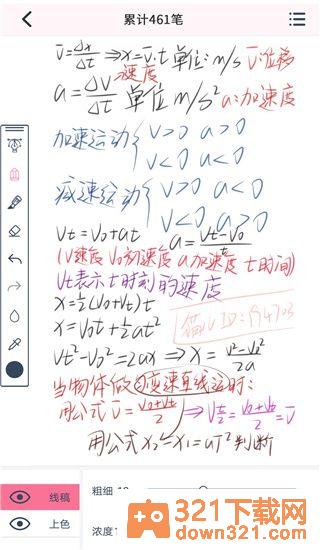 累计461笔
v̅=Δx/Δt ⇒ x=v̅·t 单位:m/s v̅:位移
速度
a=ΔV/Δt 单位 m/s² a:加速度
加速运动{V>0 a>0
V<0 a<0
减速运动{V>0 a<0
V<0 a>0
Vt=V0+at a=(Vt-V0)/t
(V速度 V0初速度 a加速度 t时间)
Vt表示t时刻的速度
x=½(V0+Vt)t
x=V0t+½at²
Vt²-V0²=2ax ⇒ x=(V²-V0²)/2a
当物体做匀变速直线运时:
用公式 v̅=(V0+Vt)/2 ⇒
用公式 x2-x1=aT²判断
线稿
上色
粗细
浓度
321下载网
down321.com